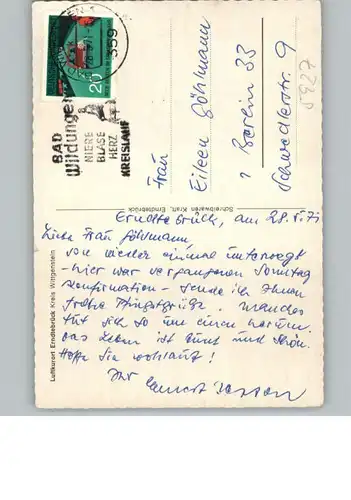 359
20
BAD
Wildungen
NIERE
BLASE
HERZ
KREISLAUF
Frau
Eileen Göhlmann
1 Berlin 33
Schwedlerstr. 9
5927
Schreibwaren Kraft, Erndtebrück
Luftkurort Erndtebrück Kreis Wittgenstein
Erndtebrück, am 28.5.71
Liebe Frau Göhlmann,
wieder einmal unterwegs
- hier war vergangenen Sonntag
Konfirmation - sende ich Ihnen
frohe Pfingstgrüße. Manches
tut sich so um einen herum.
Das Leben ist bunt und schön.
Hoffe Sie wohlauf!
Ihr